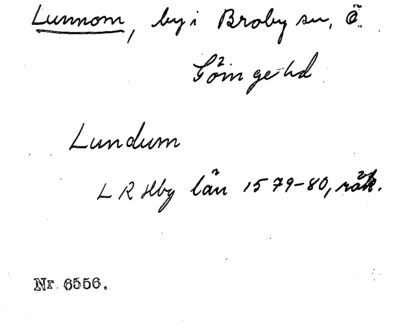 Lunnom, by i Broby sn, Ö.
Göinge hd
Lundum
L R Hbg län 1579-80, räk.
Nr 6556.